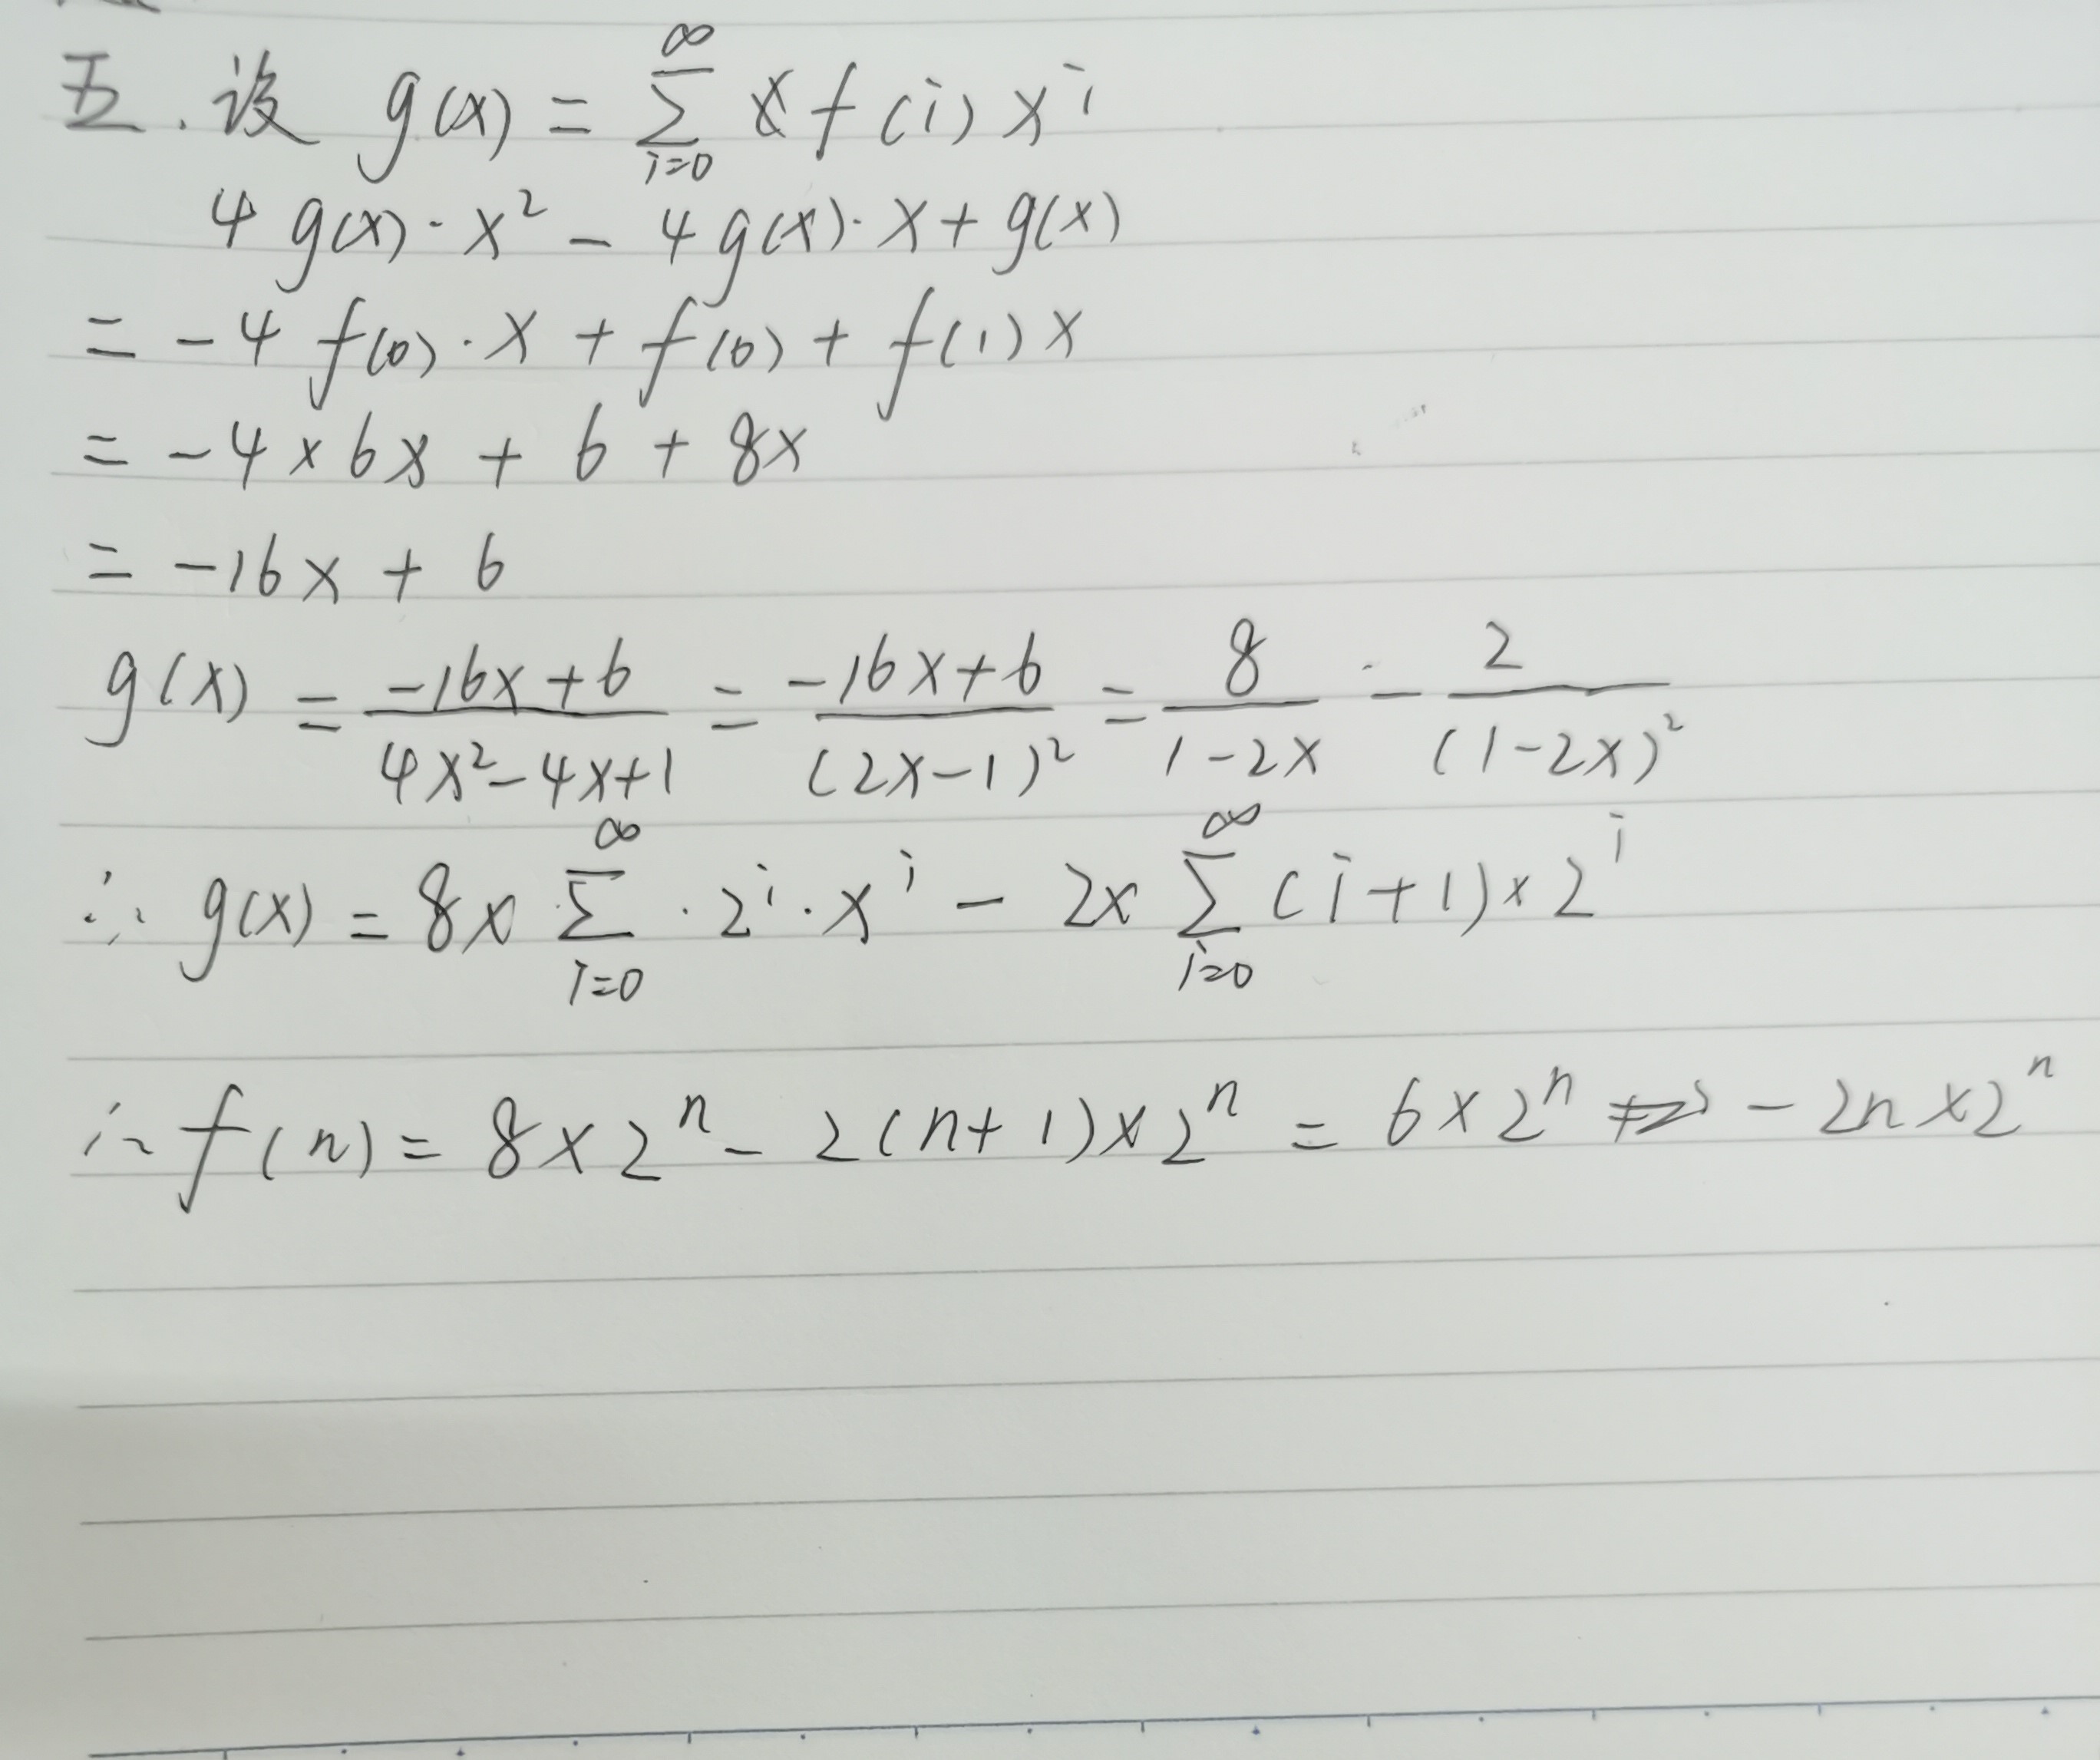 五.设 g(x) = ∑_{i=0}^{∞} f(i) x^i
4 g(x)·x² - 4 g(x)·x + g(x)
= -4 f(0)·x + f(0) + f(1) x
= -4 × 6x + 6 + 8x
= -16x + 6
g(x) = \frac{-16x+6}{4x²-4x+1} = \frac{-16x+6}{(2x-1)²} = \frac{8}{1-2x} - \frac{2}{(1-2x)²}
∴ g(x) = 8× ∑_{i=0}^{∞} · 2^i · x^i - 2× ∑_{i=0}^{∞} (i+1) × 2^i
∴ f(n) = 8 × 2^n - 2(n+1) × 2^n = 6 × 2^n - 2n × 2^n